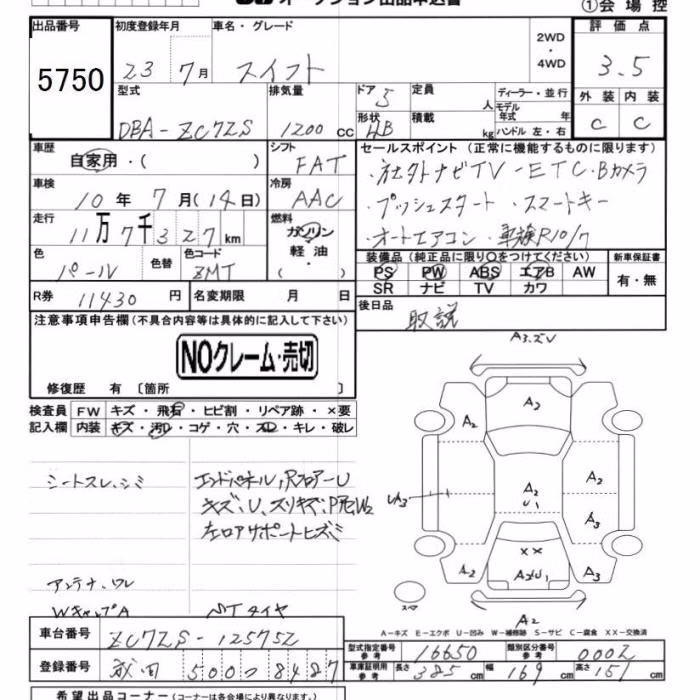 オークション出品申込書
①会場控
出品番号
5750
初度登録年月
23 7月
車名・グレード
スイフト
2WD
・
4WD
評価点
3.5
型式
DBA-ZC72S
排気量
1200 cc
ドア
5
形状
HB
定員
人
積載
kg
ディーラー・並行
モデル年式 年
ハンドル 左・右
外装
C
内装
C
車歴
自家用・( )
シフト
FAT
車検
10年 7月(14日)
冷房
AAC
走行
11万7千327km
燃料
ガソリン
軽油
・( )
色
パール
色替
色コード
ZMT
R券 11430 円
名変期限 月 日
セールスポイント (正常に機能するものに限ります)
・社外ナビTV-ETC・Bカメラ
・プッシュスタート・スマートキー
・オートエアコン・車検R10/7
装備品(純正品に限り○をつけてください)
PS PW ABS エアB AW
SR ナビ TV カワ
新車保証書
有・無
後日品
取説
注意事項申告欄(不具合内容等は具体的に記入して下さい)
NOクレーム・売切
修復歴 有 〔箇所 〕
検査員記入欄
FW キズ・飛石・ヒビ割・リペア跡・×要
内装 キズ・汚レ・コゲ・穴・スレ・キレ・破レ
シートスレ、シミ
エンドパネル,RフロアーU
キズ、U、スリキズ、P左W2
左ロアサポートヒズミ
アンテナ、ワレ
WキャップA
STタイヤ
A3.ズU
A3
A2
A2
A2
U1
UA3
A3
××
A2
A2U1
A3
A2
スペア
A－キズ E－エクボ U－凹み W－補修跡 S－サビ C－腐食 XX－交換済
車台番号
ZC72S-125752
登録番号
秋田 500 ツ 8487
型式指定番号 参考 16650
類別区分番号 参考 0002
車庫証明用 参考 長さ 385cm 幅 169cm 高さ 151cm
希望出品コーナー(コーナーは各会場により異なります。)